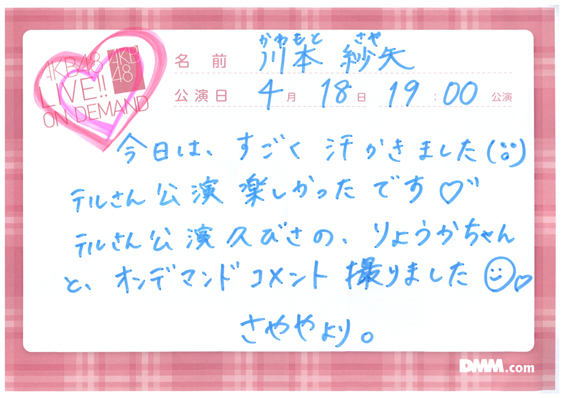 AKB48
LIVE!!
ON DEMAND
AKB
48
かわもと さや
名前 川本 紗矢
公演日 4月 18日 19:00 公演
今日は、すごく 汗かきました
テルさん公演 楽しかったです♡
テルさん公演久びさの、りょうかちゃん
と、オンデマンドコメント 撮りました☺♡
さややより。
DMM.com